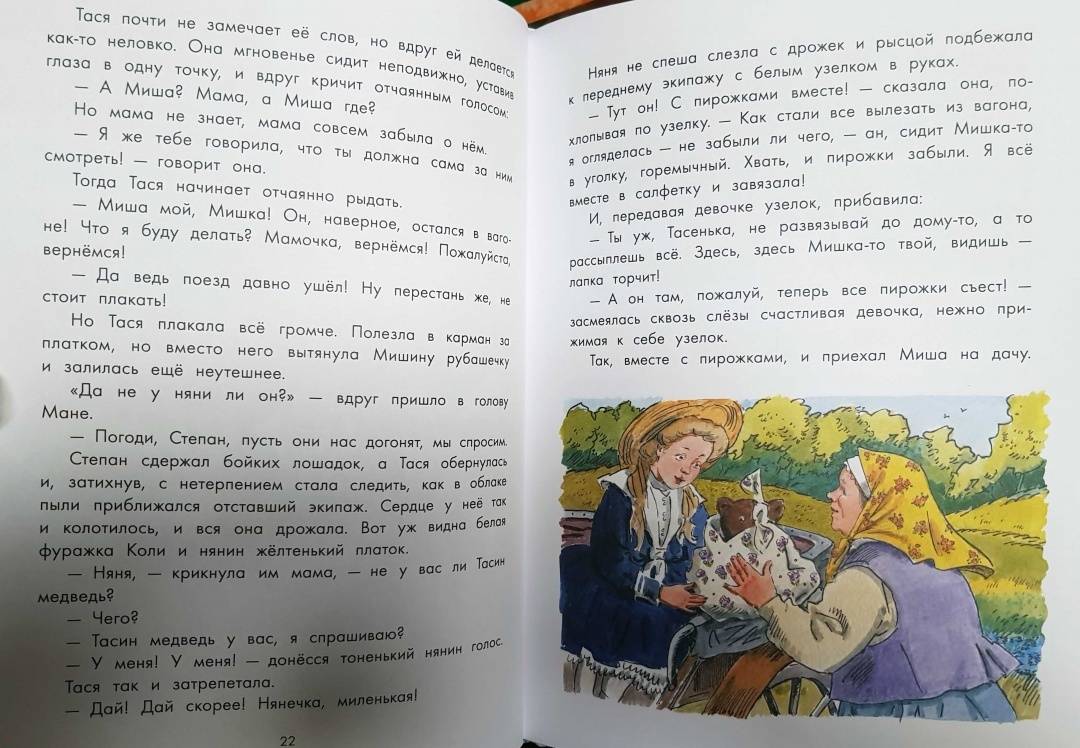 Тася почти не замечает её слов, но вдруг ей делается
как-то неловко. Она мгновенье сидит неподвижно, уставив
глаза в одну точку, и вдруг кричит отчаянным голосом:
— А Миша? Мама, а Миша где?
Но мама не знает, мама совсем забыла о нём.
— Я же тебе говорила, что ты должна сама за ним
смотреть! — говорит она.
Тогда Тася начинает отчаянно рыдать.
— Миша мой, Мишка! Он, наверное, остался в ваго-
не! Что я буду делать? Мамочка, вернёмся! Пожалуйста,
вернёмся!
— Да ведь поезд давно ушёл! Ну перестань же, не
стоит плакать!
Но Тася плакала всё громче. Полезла в карман за
платком, но вместо него вытянула Мишину рубашечку
и залилась ещё неутешнее.
«Да не у няни ли он?» — вдруг пришло в голову
Мане.
— Погоди, Степан, пусть они нас догонят, мы спросим.
Степан сдержал бойких лошадок, а Тася обернулась
и, затихнув, с нетерпением стала следить, как в облаке
пыли приближался отставший экипаж. Сердце у неё так
и колотилось, и вся она дрожала. Вот уж видна белая
фуражка Коли и нянин жёлтенький платок.
— Няня, — крикнула им мама, — не у вас ли Тасин
медведь?
— Чего?
— Тасин медведь у вас, я спрашиваю?
— У меня! У меня! — донёсся тоненький нянин голос.
Тася так и затрепетала.
— Дай! Дай скорее! Нянечка, миленькая!
22
Няня не спеша слезла с дрожек и рысцой подбежала
к переднему экипажу с белым узелком в руках.
— Тут он! С пирожками вместе! — сказала она, по-
хлопывая по узелку. — Как стали все вылезать из вагона,
я огляделась — не забыли ли чего, — ан, сидит Мишка-то
в уголку, горемычный. Хвать, и пирожки забыли. Я всё
вместе в салфетку и завязала!
И, передавая девочке узелок, прибавила:
— Ты уж, Тасенька, не развязывай до дому-то, а то
рассыплешь всё. Здесь, здесь Мишка-то твой, видишь —
лапка торчит!
— А он там, пожалуй, теперь все пирожки съест! —
засмеялась сквозь слёзы счастливая девочка, нежно при-
жимая к себе узелок.
Так, вместе с пирожками, и приехал Миша на дачу.